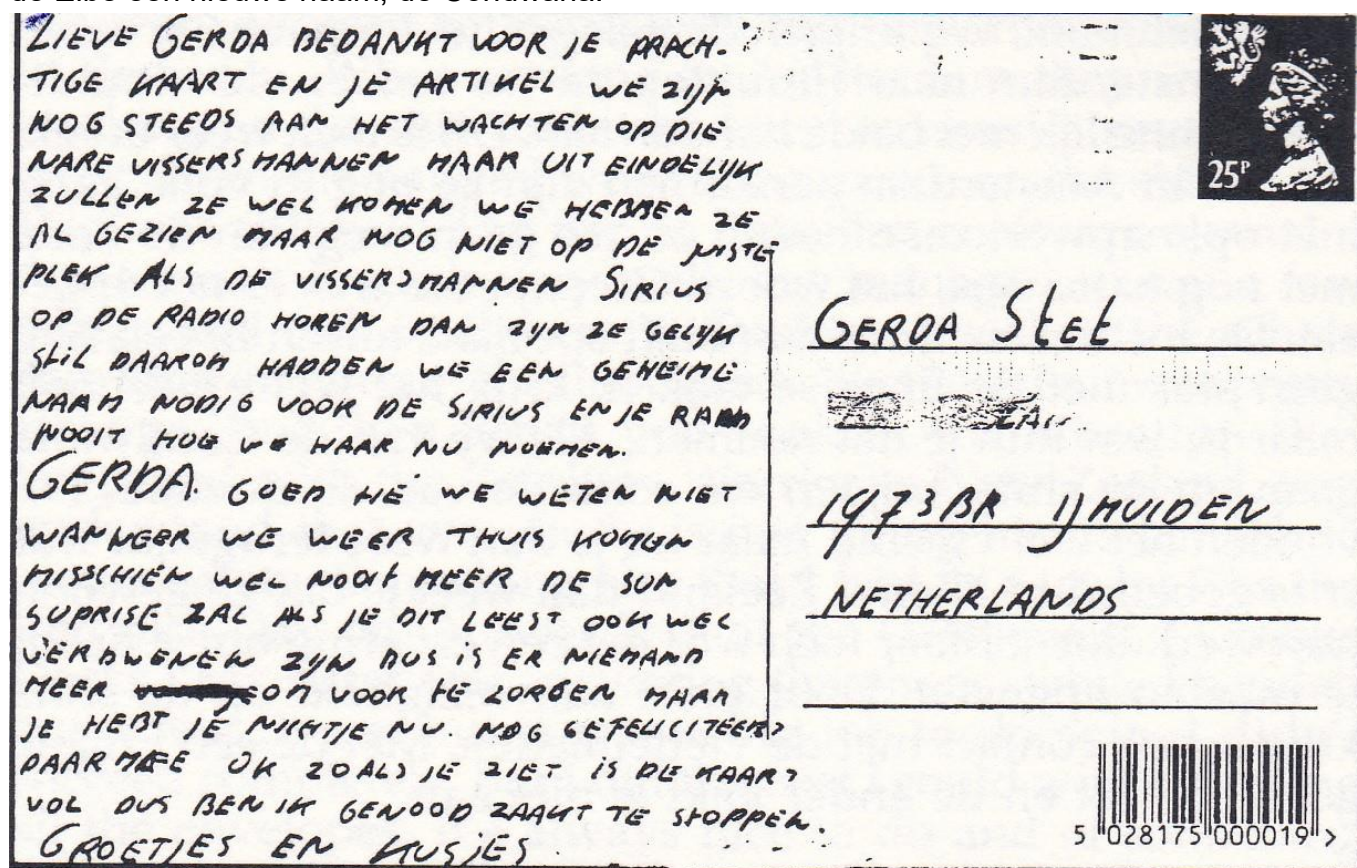 de Elbe een nieuwe naam, de Gondwana.
LIEVE GERDA BEDANKT VOOR JE PRACH-
TIGE KAART EN JE ARTIKEL WE ZIJN
NOG STEEDS AAN HET WACHTEN OP DIE
NARE VISSERSMANNEN MAAR UIT EINDELIJK
ZULLEN ZE WEL KOMEN WE HEBBEN ZE
AL GEZIEN MAAR NOG NIET OP DE JUISTE
PLEK ALS DE VISSERSMANNEN SIRIUS
OP DE RADIO HOREN DAN ZIJN ZE GELIJK
STIL DAAROM HADDEN WE EEN GEHEIME
NAAM NODIG VOOR DE SIRIUS EN JE RAAD
NOOIT HOE WE HAAR NU NOEMEN.
GERDA. GOED HÉ WE WETEN NIET
WANNEER WE WEER THUIS KOMEN
MISSCHIEN WEL NOOIT MEER DE SUN
SUPRISE ZAL ALS JE DIT LEEST OOK WEL
VERDWENEN ZIJN DUS IS ER NIEMAND
MEER OM VOOR TE ZORGEN MAAR
JE HEBT JE NICHTJE NU. NOG GEFELICITEERD
DAARMEE OK ZOALS JE ZIET IS DE KAART
VOL DUS BEN IK GENOODZAAKT TE STOPPEN.
GROETJES EN KUSJES
25P
GERDA Stet
1973BR IJMUIDEN
NETHERLANDS
5 028175 000019 >